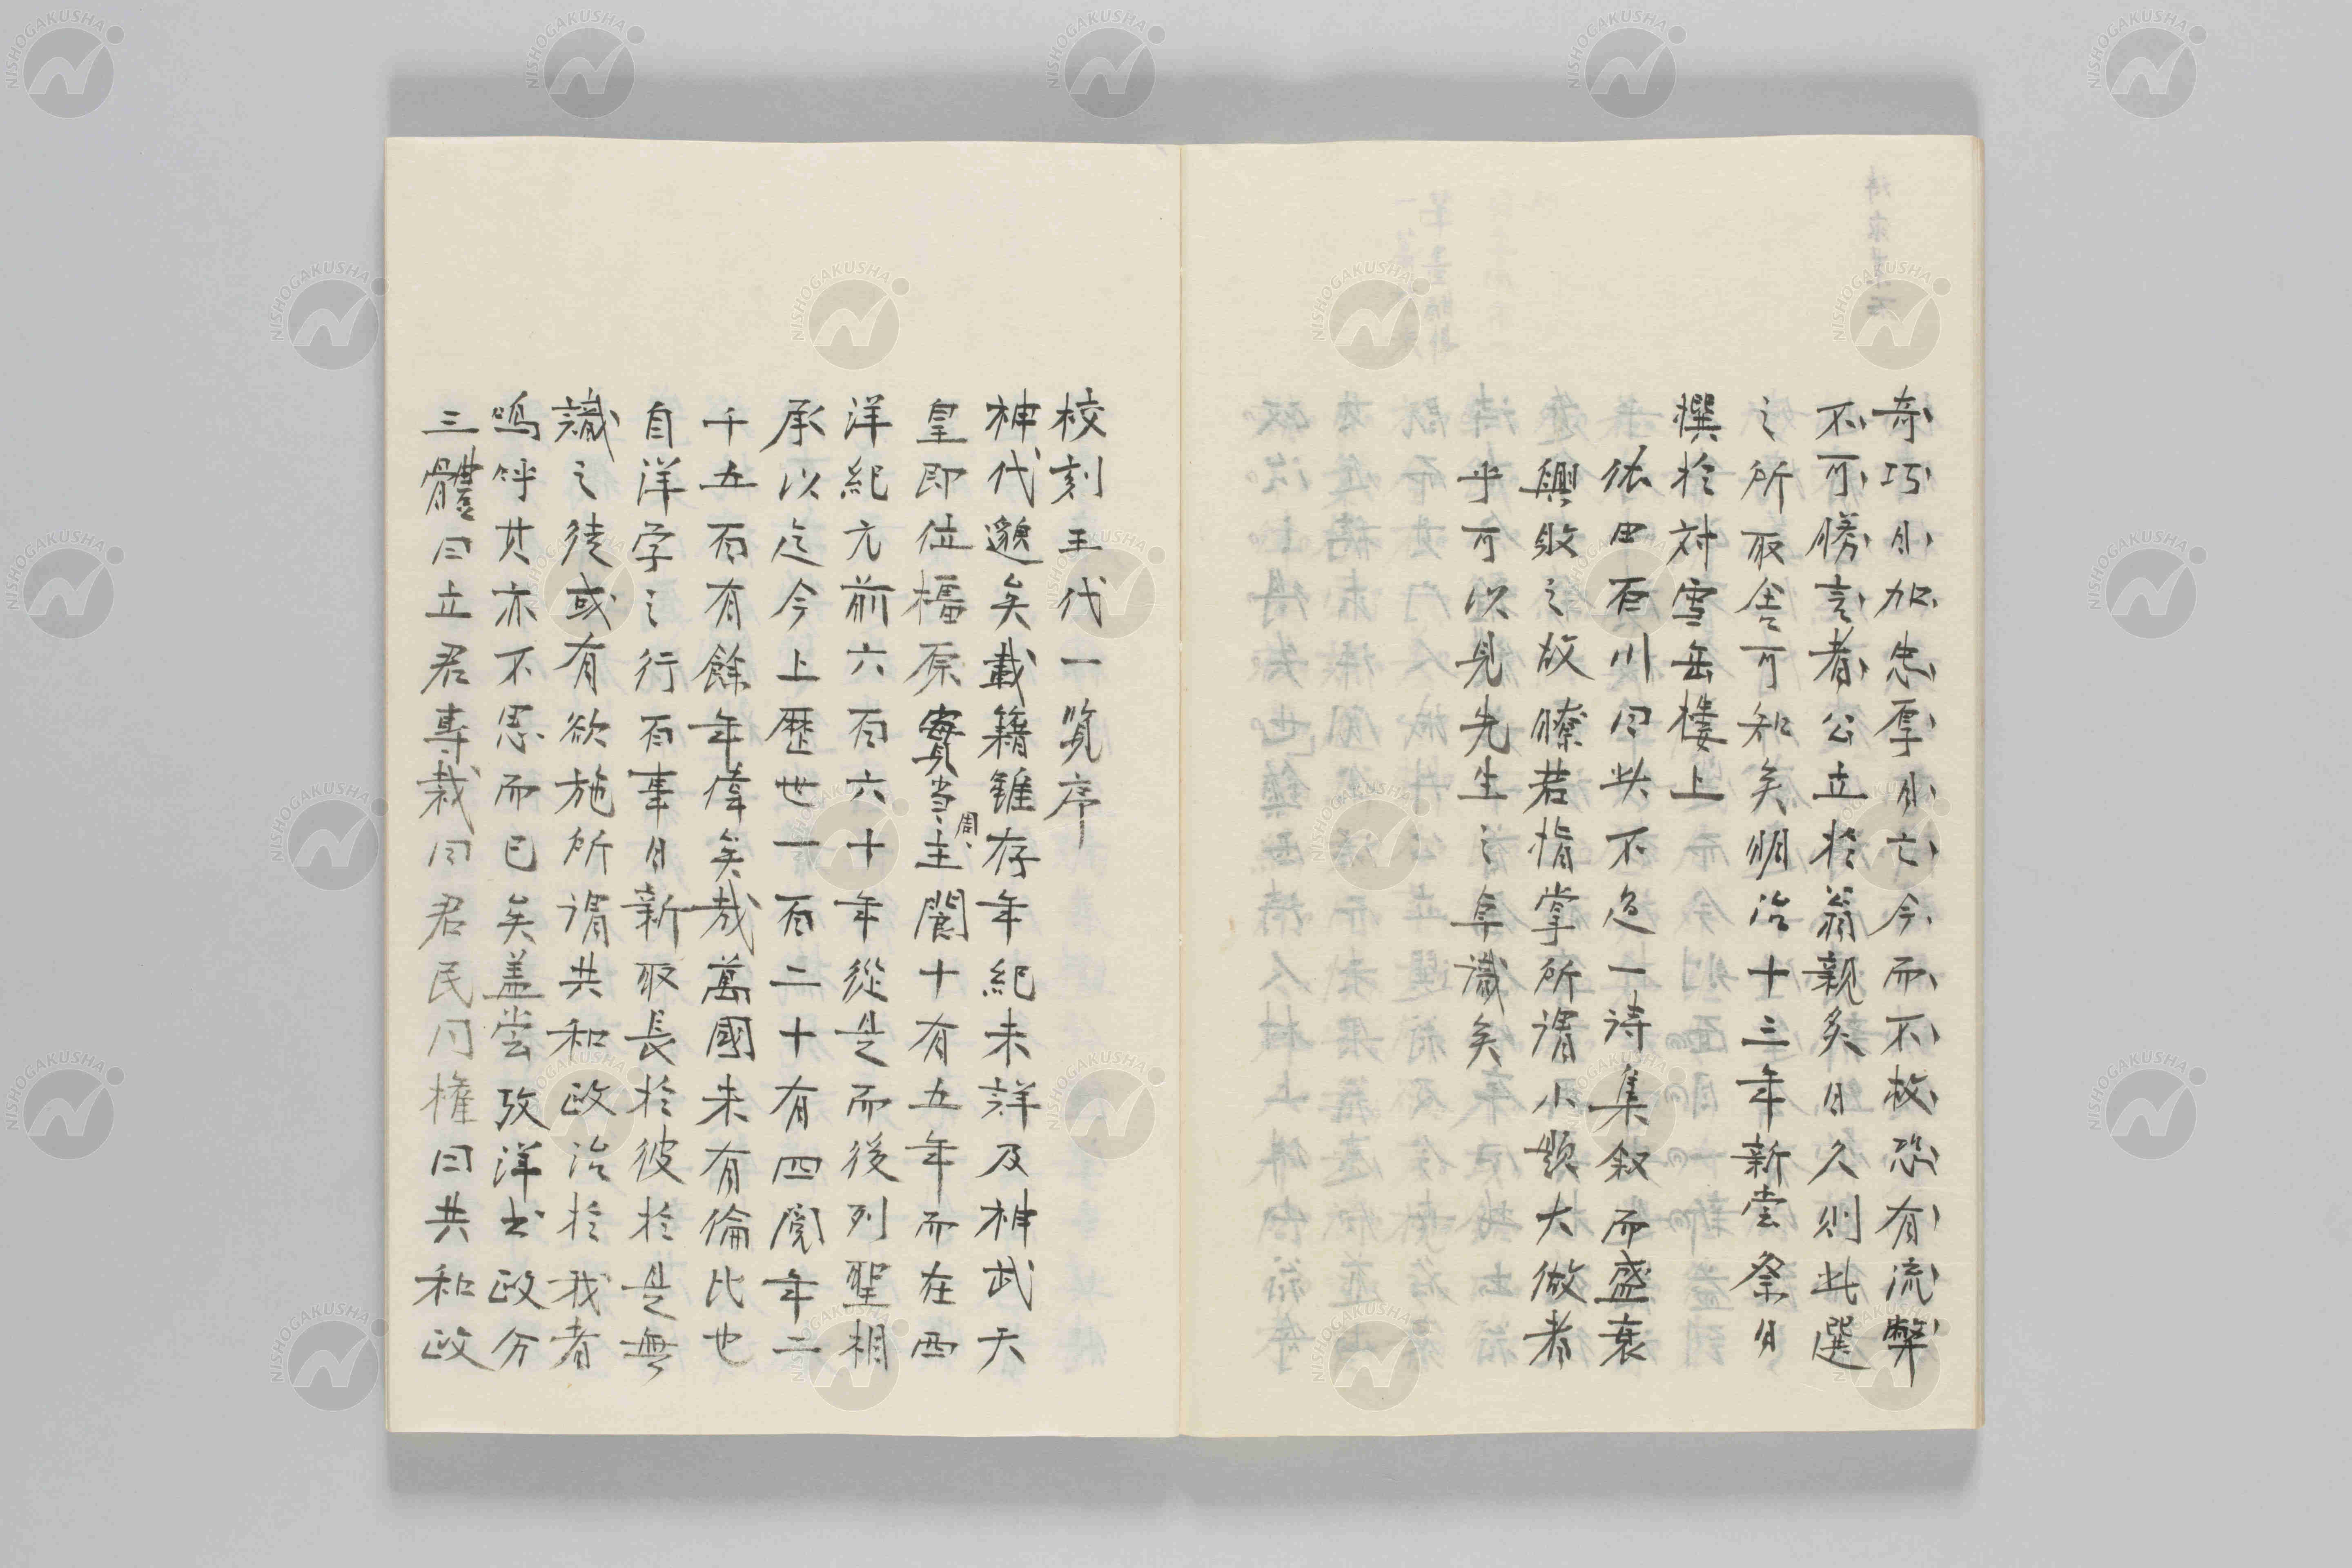 奇巧日加忠厚日亡今而不救恐有流弊
不可勝言者公立於翁親炙日久則此選
之所取舍可知矣明治十三年新嘗祭日
撰於対雪岳樓上
依田百川曰此不過一詩集叙而盛衰
興敗之故瞭若指掌所謂小題大做者
乎可以見先生之卓識矣
校刻王代一覧序
神代邈矣載籍雖存年紀未詳及神武天
皇即位橿原寔当周主閬十有五年而在西
洋紀元前六百六十年從是而後列聖相
承以迄今上歴世一百二十有四閲年二
千五百有餘年偉矣哉萬國未有倫比也
自洋学之行百事日新取長於彼於是無
識之徒或有欲施所謂共和政治於我者
嗚呼其亦不思而已矣盖嘗攷洋書政分
三體曰立君専裁曰君民同権曰共和政
NISHOGAKUSHA